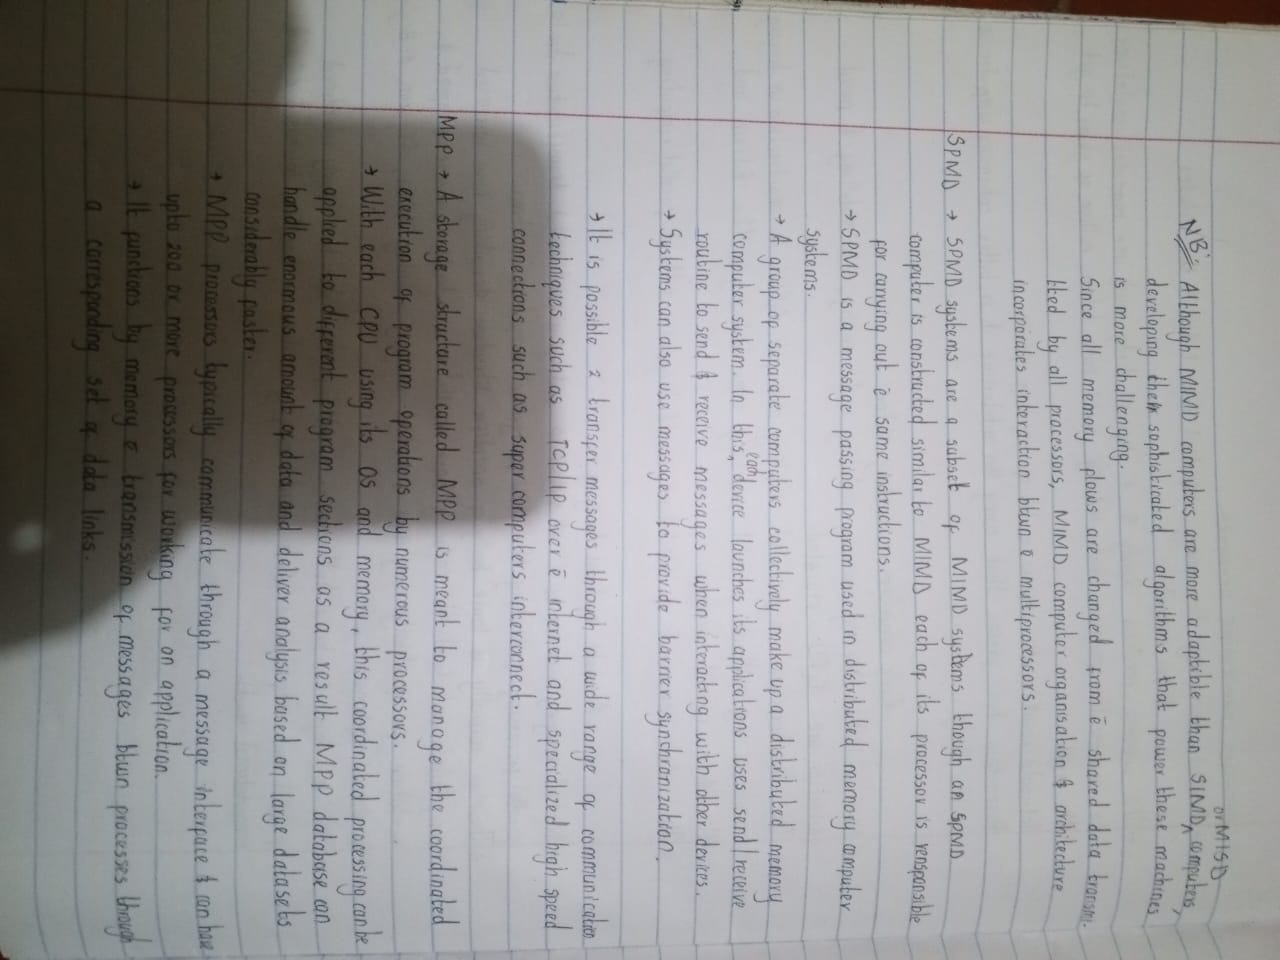 or MISD
NB: Although MIMD computers are more adaptible than SIMD ^ computers,
developing them sophisticated algorithms that power these machines
is more challenging.
Since all memory flows are changed from ē shared data transmi-
tted by all processors, MIMD computer organisation & architecture
incorporates interaction btwn ē multiprocessors.
SPMD → SPMD systems are a subset of MIMD systems though an SPMD
computer is constructed similar to MIMD each of its processor is rensponsible
for carrying out ē same instructions.
→ SPMD is a message passing program used in distributed memory computer
systems.
→ A group of separate computers collectively make up a distributed memory
computer system. In this, each device launches its applications uses send/receive
routine to send & receive messages when interacting with other devices.
→ Systems can also use messages to provide barrier synchronization.
→ It is possible 2 transfer messages through a wide range of communication
techniques such as TCP/IP over ē internet and specialized high speed
connections such as super computers interconnect.
MPP → A storage structure called MPP is meant to manage the coordinated
execution of program operations by numerous processors.
→ With each CPU using its OS and memory, this coordinated processing can be
applied to different program sections as a result MPP database can
handle enormous amount of data and deliver analysis based on large datasets
considerably faster.
→ MPP processors typically communicate through a message interface & can have
upto 200 or more processors for working for an application.
→ It functions by memory ē transmission of messages btwn processes through
a corresponding set of data links.